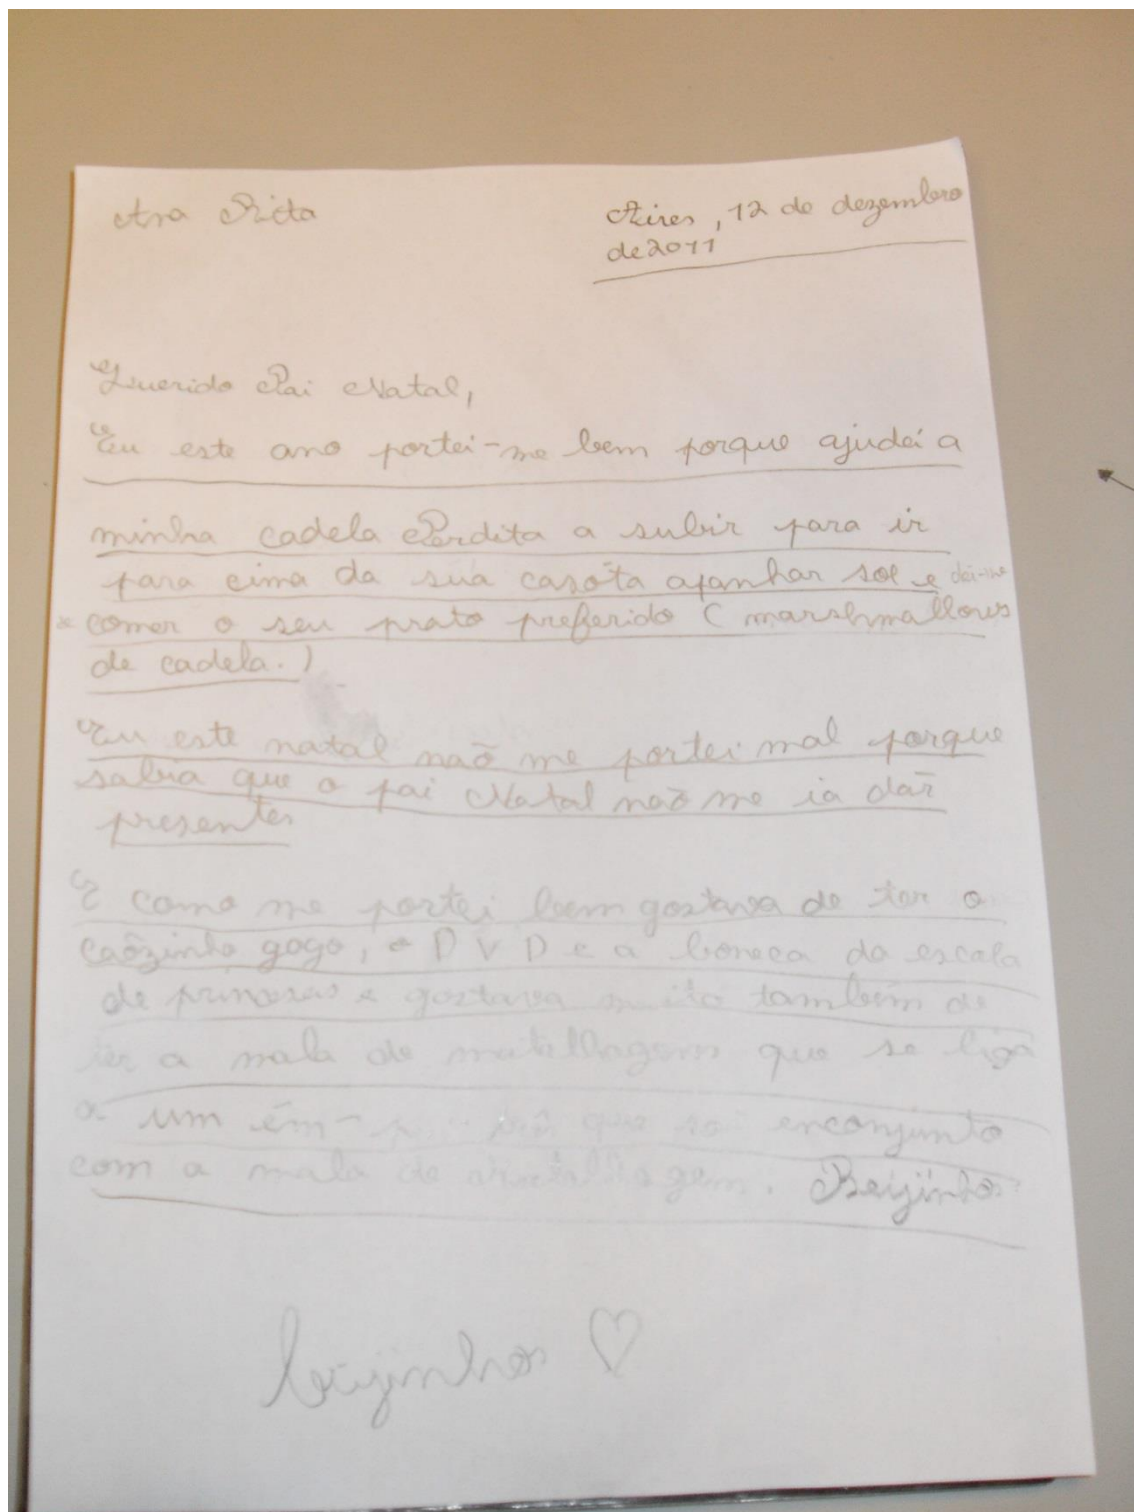 Ana Rita
Aires, 12 de dezembro
de 2011
Querido Pai Natal,
Eu este ano portei-me bem porque ajudei a
minha cadela Perdita a subir para ir
para cima da sua casota apanhar sol e dei-me
a comer o seu prato preferido (marshmallows
de cadela.)
Eu este natal naõ me portei mal porque
sabia que o pai Natal naõ me ia dar
presentes
E como me portei bem gostava de ter o
caõzinho gogo, o DVD e a boneca da escola
de princesas e gostava muito também de
ter a mala de que se liga
a um que enconjunto
com a mala de Beijinhos
beijinhos